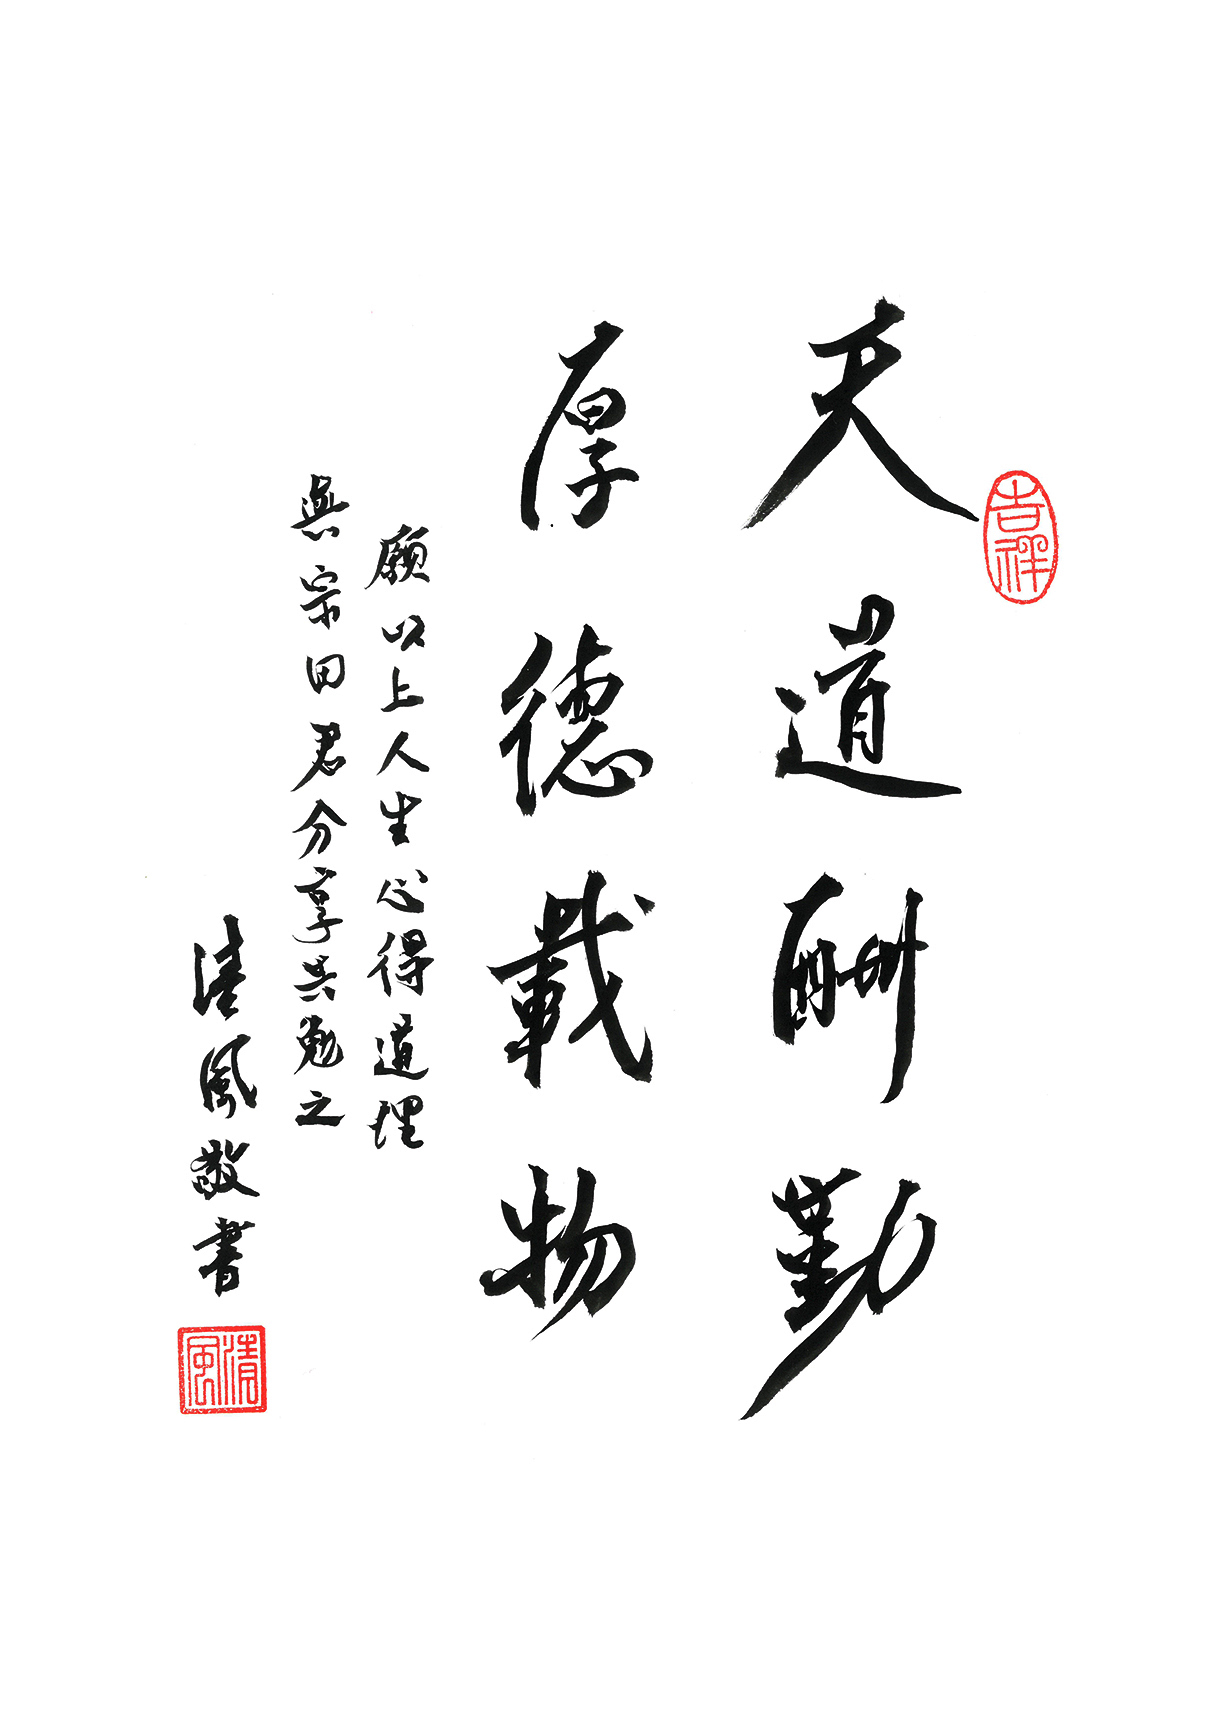 天道酬勤
吉祥
厚德載物
願以上人生心得道理
與宗田君分享共勉之
清風敬書
清風